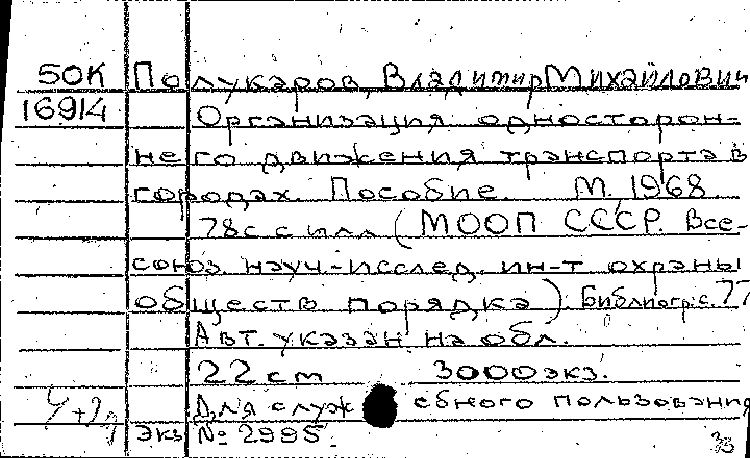 50К Полукаров, Владимир Михайлович
16914 Организация односторон-
него движения транспорта в
городах. Пособие. М, 1968
78с с илл (МООП СССР. Все-
союз. науч.-исслед. ин-т охраны
обществ порядка). Библиогр: с. 77
Авт. указан на обл.
22 cm 3000 экз.
Для служебного пользования
экз № 2995.